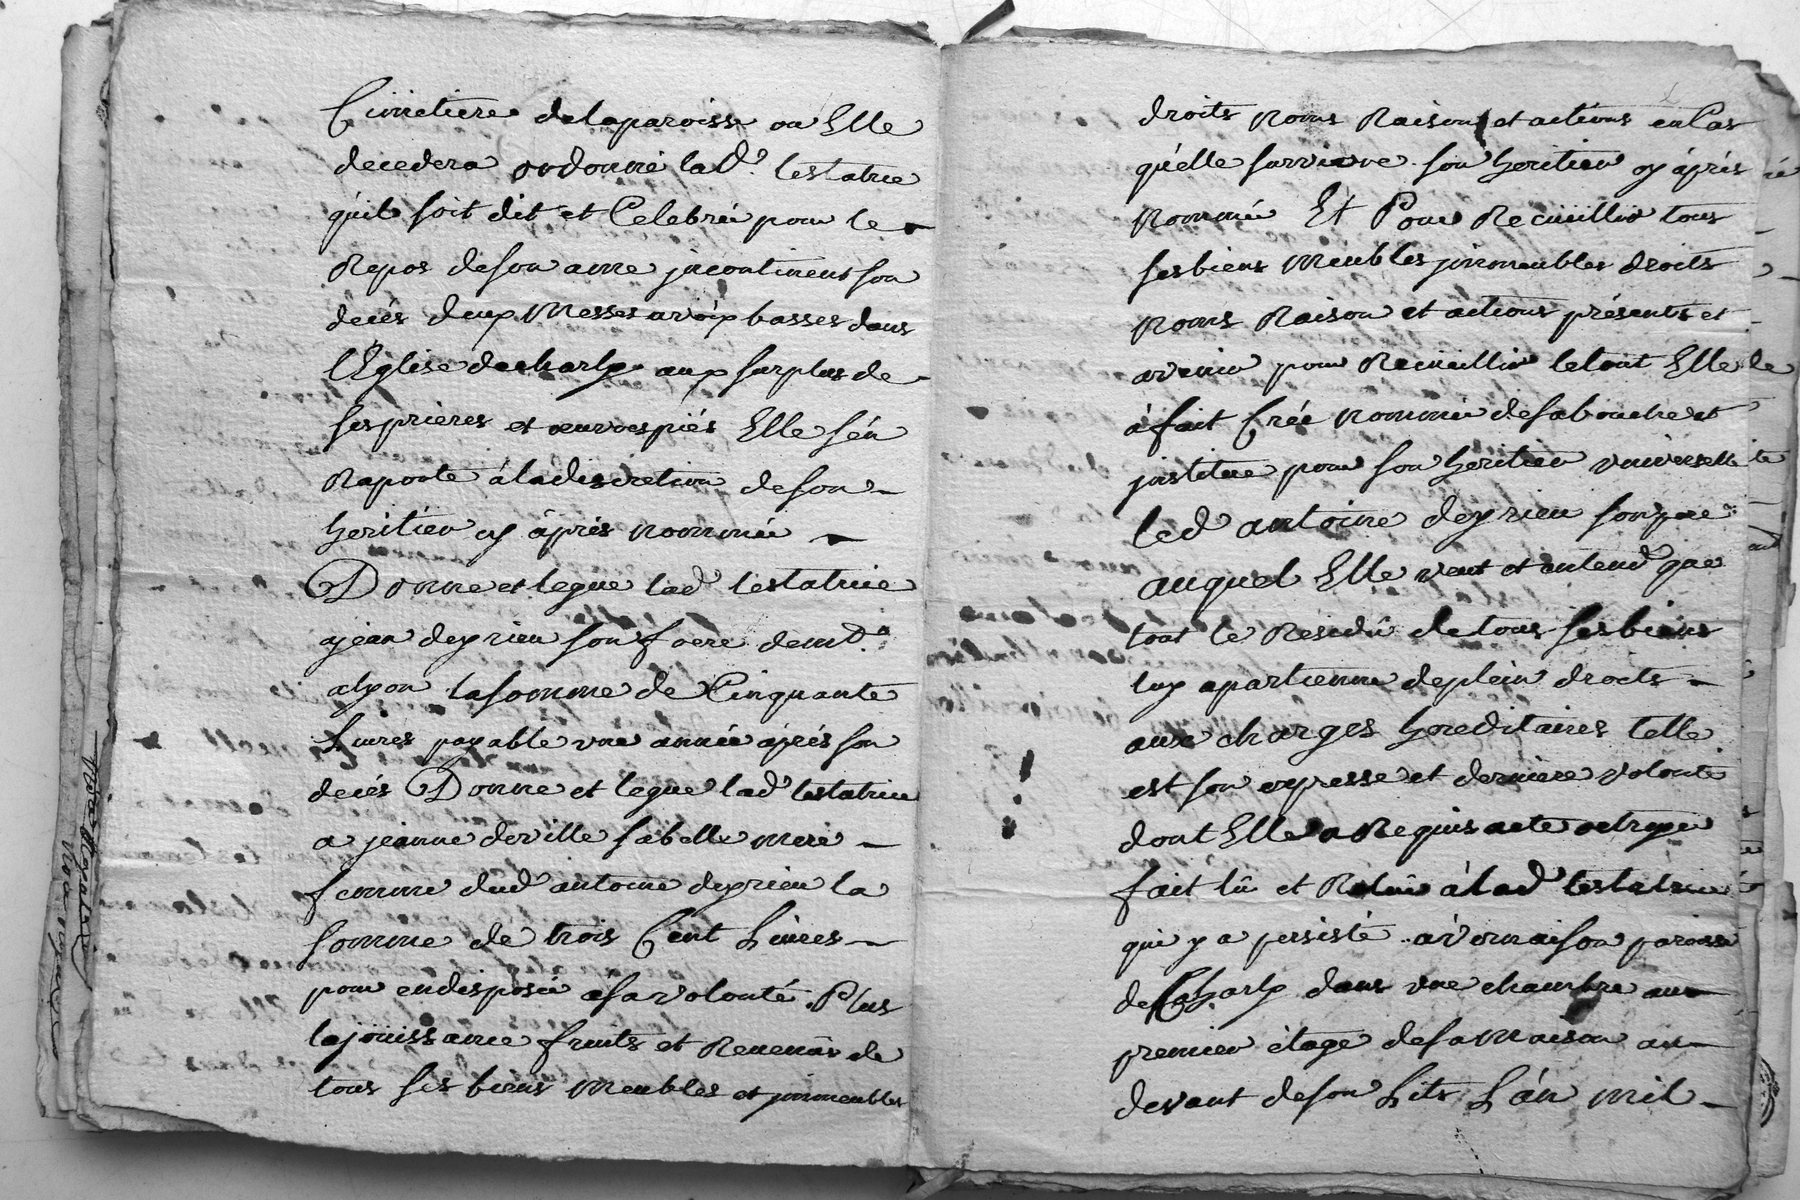 Cimetiere delaparoisse ou Elle
decedera ordonné lad.e testatrice
qu'il soit dit et Celebrée pour le
Repos deson ame jncontinent son
decés deux Messes avoix basses dans
l'Eglise decharly aux surplus de
ses prieres et oeuvres piés Elle sén
Raporte áladiscretion deson
heritier cy áprés nommée
Donne et legue lad.e testatrice
ajean deyrieu son frere demt.
alyon lasomme de Cinquante
Livres payable une année áprés son
decés Donne et legue lad.e testatrice
a jeanne deville sabelle mere
femme dud. antoine deyrieu la
somme de trois Cent Livres
pour endisposer ásavolonté. Plus
lajoüissance fruits et Revenus de
tous ses biens Meubles et jmmeubles
droits Noms Raison et actions en Cas
qu'elle survive son heritier cy áprés
Nommée Et Pour Recüillir tous
ses biens Meubles jmmeubles droits
Noms Raison et actions présents et
avenir pour Recueillir letout Elle
áfait Créé Nommée desabouche et
jnstitue pour son heritier universelle
led. antoine deyrieu son pere
auquel Elle veut et entend que
tout le Residû detous ses biens
luy apartienne deplein droits
aux charges hereditaires telle
est son expresse et derniere volonté
dont Elle a Requis acte octroyé
fait lû et Relû álad.e testatrice
qui y a persisté. avernaison paroisse
de Charly dans une chambre au
premier étage desa Maison au
devant deson Lits L'án mil